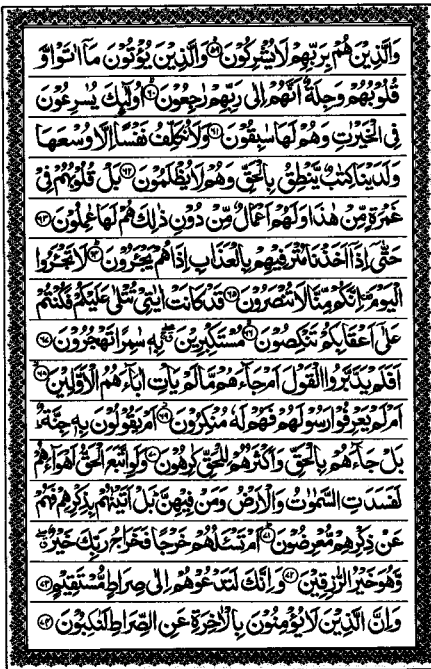 وَالَّذِيۡنَ هُمۡ بِرَبِّهِمۡ لَا يُشۡرِكُوۡنَ ۙ﴿۵۹﴾ وَالَّذِيۡنَ يُؤۡتُوۡنَ مَاۤ اٰتَوْا وَّ
قُلُوۡبُهُمۡ وَجِلَةٌ اَنَّهُمۡ اِلٰى رَبِّهِمۡ رٰجِعُوۡنَ ۙ﴿۶۰﴾ اُولٰٓئِكَ يُسٰرِعُوۡنَ
فِى الۡخَيۡرٰتِ وَهُمۡ لَهَا سٰبِقُوۡنَ ﴿۶۱﴾ وَلَا نُكَلِّفُ نَفۡسًا اِلَّا وُسۡعَهَا
وَلَدَيۡنَا كِتٰبٌ يَّنۡطِقُ بِالۡحَقِّ وَهُمۡ لَا يُظۡلَمُوۡنَ ﴿۶۲﴾ بَلۡ قُلُوۡبُهُمۡ فِىۡ
غَمۡرَةٍ مِّنۡ هٰذَا وَلَهُمۡ اَعۡمَالٌ مِّنۡ دُوۡنِ ذٰلِكَ هُمۡ لَهَا عٰمِلُوۡنَ ﴿۶۳﴾
حَتّٰٓى اِذَاۤ اَخَذۡنَا مُتۡرَفِيۡهِمۡ بِالۡعَذَابِ اِذَا هُمۡ يَجۡـَٔرُوۡنَ ؕ﴿۶۴﴾ لَا تَجۡـَٔرُوا
الۡيَوۡمَ اِنَّكُمۡ مِّنَّا لَا تُنۡصَرُوۡنَ ﴿۶۵﴾ قَدۡ كَانَتۡ اٰيٰتِىۡ تُتۡلٰى عَلَيۡكُمۡ فَكُنۡتُمۡ
عَلٰٓى اَعۡقَابِكُمۡ تَنۡكِصُوۡنَ ۙ﴿۶۶﴾ مُسۡتَكۡبِرِيۡنَ ۖ بِهٖ سٰمِرًا تَهۡجُرُوۡنَ ﴿۶۷﴾
اَفَلَمۡ يَدَّبَّرُوا الۡقَوۡلَ اَمۡ جَآءَهُمۡ مَّا لَمۡ يَاۡتِ اٰبَآءَهُمُ الۡاَوَّلِيۡنَ ﴿۶۸﴾
اَمۡ لَمۡ يَعۡرِفُوۡا رَسُوۡلَهُمۡ فَهُمۡ لَهٗ مُنۡكِرُوۡنَ ﴿۶۹﴾ اَمۡ يَقُوۡلُوۡنَ بِهٖ جِنَّةٌ ؕ
بَلۡ جَآءَهُمۡ بِالۡحَقِّ وَاَكۡثَرُهُمۡ لِلۡحَقِّ كٰرِهُوۡنَ ﴿۷۰﴾ وَلَوِ اتَّبَعَ الۡحَقُّ اَهۡوَآءَهُمۡ
لَفَسَدَتِ السَّمٰوٰتُ وَالۡاَرۡضُ وَمَنۡ فِيۡهِنَّ ؕ بَلۡ اَتَيۡنٰهُمۡ بِذِكۡرِهِمۡ فَهُمۡ
عَنۡ ذِكۡرِهِمۡ مُّعۡرِضُوۡنَ ؕ﴿۷۱﴾ اَمۡ تَسۡـَٔلُهُمۡ خَرۡجًا فَخَرَاجُ رَبِّكَ خَيۡرٌ ۖ
وَّهُوَ خَيۡرُ الرّٰزِقِيۡنَ ﴿۷۲﴾ وَاِنَّكَ لَتَدۡعُوۡهُمۡ اِلٰى صِرَاطٍ مُّسۡتَقِيۡمٍ ﴿۷۳﴾
وَاِنَّ الَّذِيۡنَ لَا يُؤۡمِنُوۡنَ بِالۡاٰخِرَةِ عَنِ الصِّرَاطِ لَنٰكِبُوۡنَ ﴿۷۴﴾